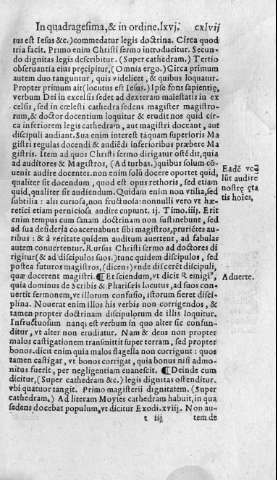 In quadragesima, & in ordine. lxvj. cxlvij
tus est Iesus &c.) commendatur legis doctrina. Circa quod
tria facit. Primo enim Christi sermo introducitur. Secun-
do dignitas legis describitur. (Super cathedram.) Tertio
observantia eius præcipitur, (Omnia ergo.) Circa primum
autem duo tanguntur, quis videlicet, & quibus loquatur.
Propter primum ait (locutus est Iesus.) Ipse fons sapientię,
verbum Dei in excelsis sedet ad dexteram maiestatis in ex-
celsis, sed in cœlesti cathedra sedens magister magistro-
rum, & doctor docentium loquitur & erudit nos quid cir-
ca inferiorem legis cathedram, aut magistri doceant, aut
discipuli audiant. Sua enim interest tāquam superioris Ma
gistri regulas docendi & audiēdi inferioribus præbere Ma
gistris. Item ad quos Christi sermo dirigatur ostēdit, quia
ad auditores & Magistros, (Ad turbas.) quibus solum con-
uenit audire docentes. non enim solū docere oportet quid,
qualiter sit docendum, quod est opus rethoris, sed etiam
quid, qualiter sit audiendum. Quidam enim non vtilia, sed
subtilia: alij curiosa, non fructuosa: nonnulli vero vt hæ-
retici etiam perniciosa audire cupiunt. ij. Timo. iiij. Erit
enim tempus cum sanam doctrinam non sustinebunt, sed
ad sua desideria coaceruabunt sibi magistros, prurientes au-
ribus: & à veritate quidem auditum auertent, ad fabulas
autem conuertentur. Rursus Christi sermo ad doctores di
rigitur (& ad discipulos suos.) tunc quidem discipulos, sed
postea futuros magistros, (dicens) vnde disceret discipuli,
quæ docerent magistri. ¶ Et sciendum, vt dicit S. emigi⁹,
quia dominus de Scribis & Pharisæis locutus, ad suos con-
uertit sermonem, vt illorum confusio, istorum fieret disci-
plina. Nouerat enim illos his verbis non corrigendos, &
tamen propter doctrinam discipulorum de illis loquitur.
Infructuosum nanq; est verbum in quo alter sic confun-
ditur, vt alter non erudiatur. Nam & deus non propter
malos castigationem transmittit super terram, sed propter
bonos. dicit enim quia malos flagella non corrigunt: quos
tamen castigat, vt bonos corrigat, quia bonus nisi admo-
nitus fuerit, per negligentiam euanescit. ¶ Deinde cum
dicitur, (Super cathedram &c.) legis dignitas ostenditur.
vbi quatuor tangit. Primo magisterij dignitatem. (Super
cathedram.) Ad literam Moyses cathedram habuit, in qua
sedens docebat populum, vt dicitur Exodi. xviij. Non au-
t iij tem de
Eadē veri
sūt audire
nostrę ęta
tis hoies,
Aduerte.